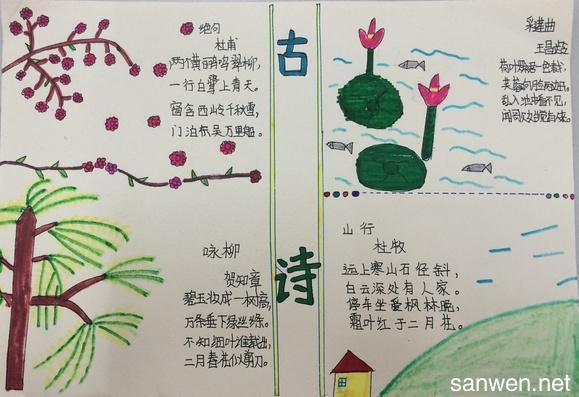 绝句
杜甫
两个黄鹂鸣翠柳,
一行白鹭上青天。
窗含西岭千秋雪,
门泊东吴万里船。
古诗
采莲曲
王昌龄
荷叶罗裙一色裁,
芙蓉向脸两边开。
乱入池中看不见,
闻歌
咏柳
贺知章
碧玉妆成一树高,
万条垂下绿丝绦。
不知细叶谁裁出,
二月春花似剪刀。
山行
杜牧
远上寒山石径斜,
白云深处有人家。
停车坐爱枫林晚,
霜叶红于二月花。
sanwen.net